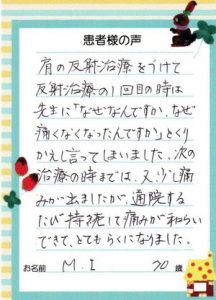 患者様の声
肩の反射治療をうけて
反射治療の1回目の時は
先生に「なぜなんですか、なぜ
痛くなくなったんですか」とくり
かえし言ってしまいました。次の
治療の時までは、又、少し痛
みが出ましたが、通院する
たび持続して痛みが和らい
できて、とてもらくになりました。
お名前 M.I 70歳